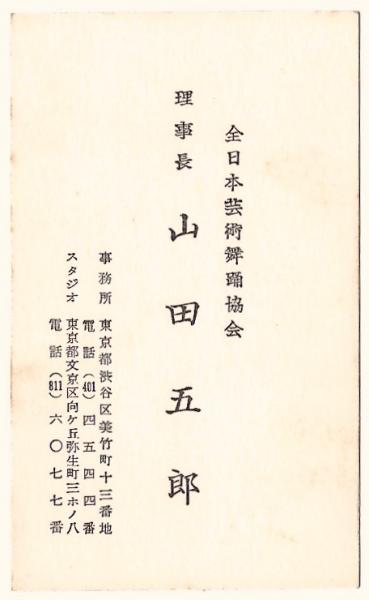 全日本芸術舞踊協会
理事長 山田五郎
事務所 東京都渋谷区美竹町十三番地
電話(401)四五四四番
スタジオ 東京都文京区向ケ丘弥生町三ホノ八
電話(811)六〇七七番